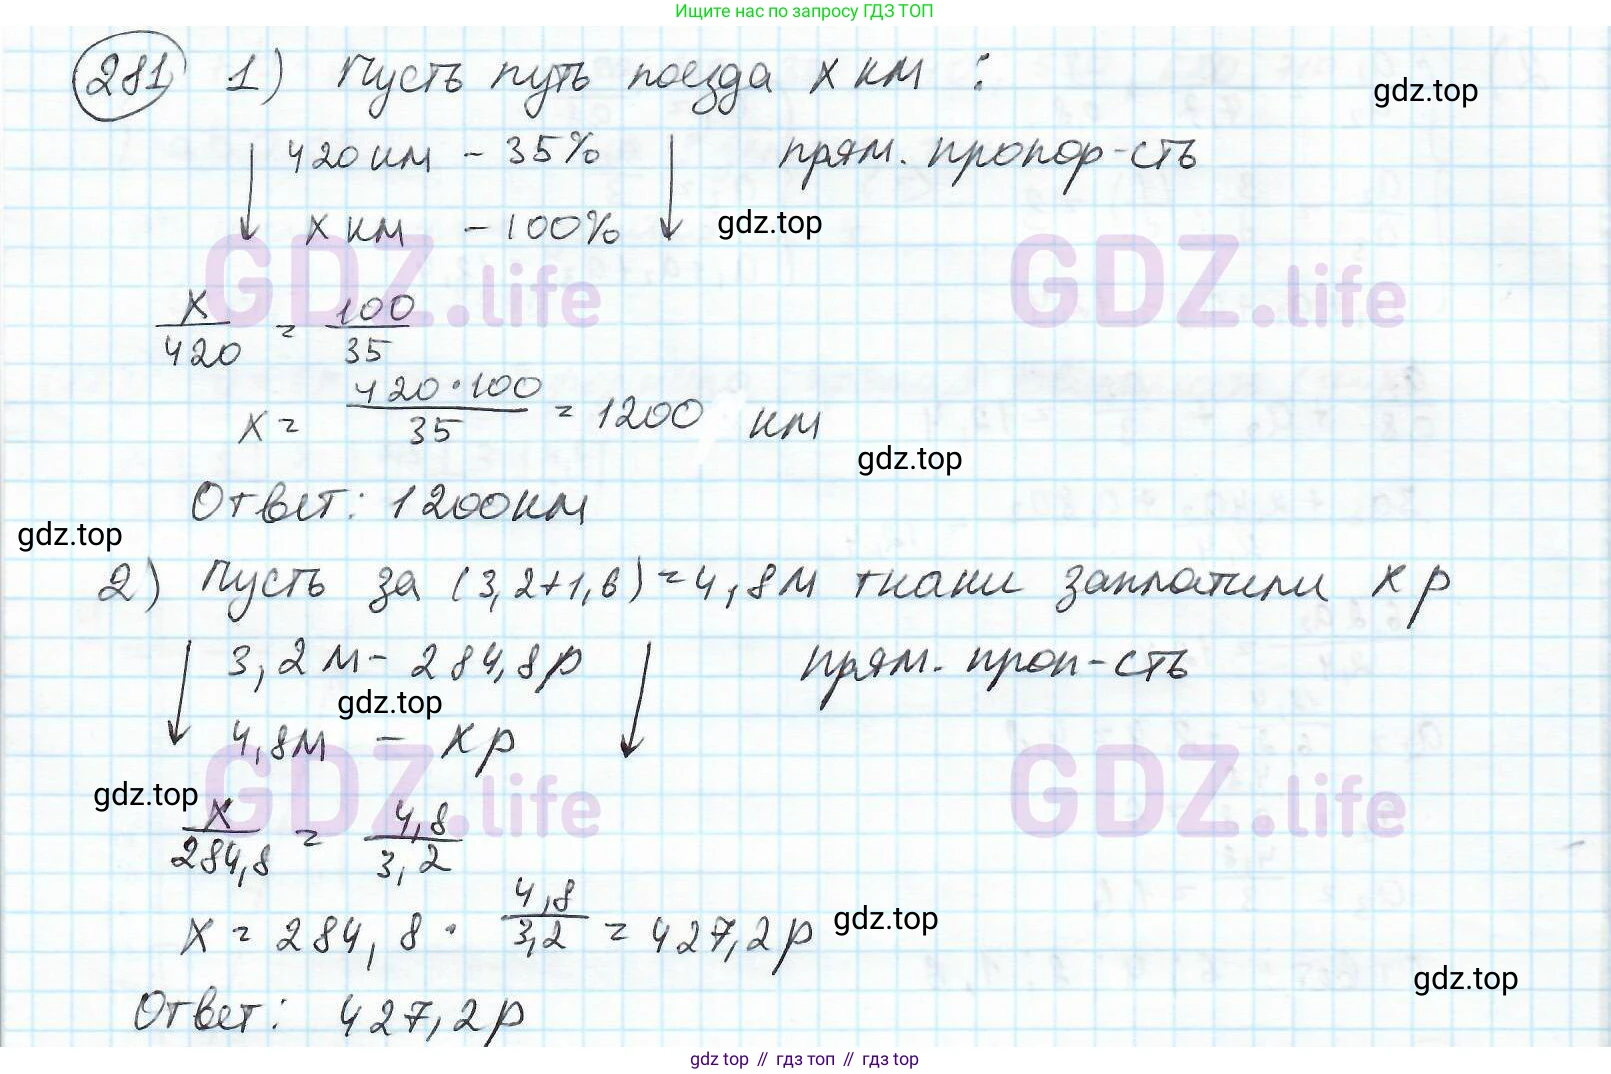 Ищите нас по запросу ГДЗ ТОП
281 1) Пусть путь поезда x км :
gdz.top
420 км - 35% прям. пропор-сть
x км - 100%
gdz.top
GDZ.life GDZ.life
x/420 = 100/35
x = 420·100/35 = 1200 км
gdz.top
Ответ: 1200км
gdz.top
2) Пусть за (3,2+1,6)=4,8м ткани заплатили x р
3,2м - 284,8р прям. проп-сть
gdz.top
4,8м - x р
GDZ.life GDZ.life
gdz.top
x/284,8 = 4,8/3,2
x = 284,8 · 4,8/3,2 = 427,2р
gdz.top
gdz.top
Ответ: 427,2р
gdz top // гдз топ // гдз top